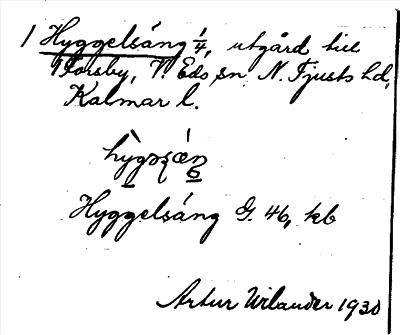 1 Hyggelsäng 1/4, utgård till
Forsby, V. Eds sn N. Tjusts hd,
Kalmar l.
Hyggelsäng G. 46, kb
Artur Wilander 1930